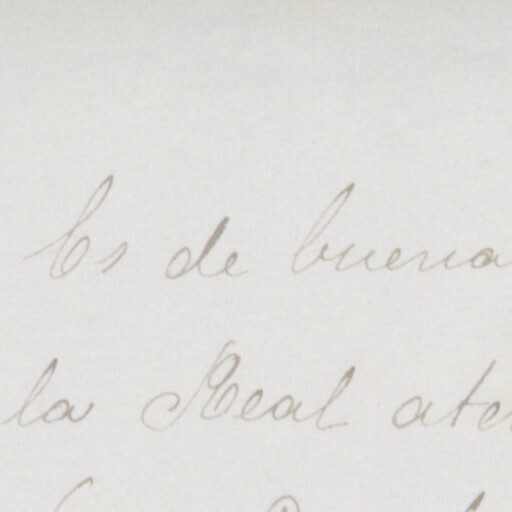 Es de buena
la Real aten